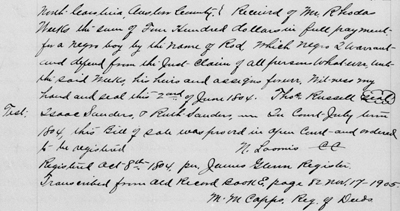 North Carolina, Onslow County. } Received of Mr. Rhodas
Weeks the sum of Four Hundred dollars in full payment
for a negro boy by the name of Rod which negro I warrant
and defend from the Just Claim of all persons what ever, unto
the said Weeks, his heirs and assigns forever. Witness my
hand and seal this 2nd of June 1804. Thos Russell Seal
Test.
Isaac Sanders, & Ruth Sanders, In Court July term
1804, this Bill of sale was proved in open Court and ordered
to be registered N. Loomis CC
Registered Oct 8th 1804, per James Glenn Register
Transcribed from old Record Book E, page 52 Nov. 17 - 1905
M. M. Capps, Reg. of Deeds